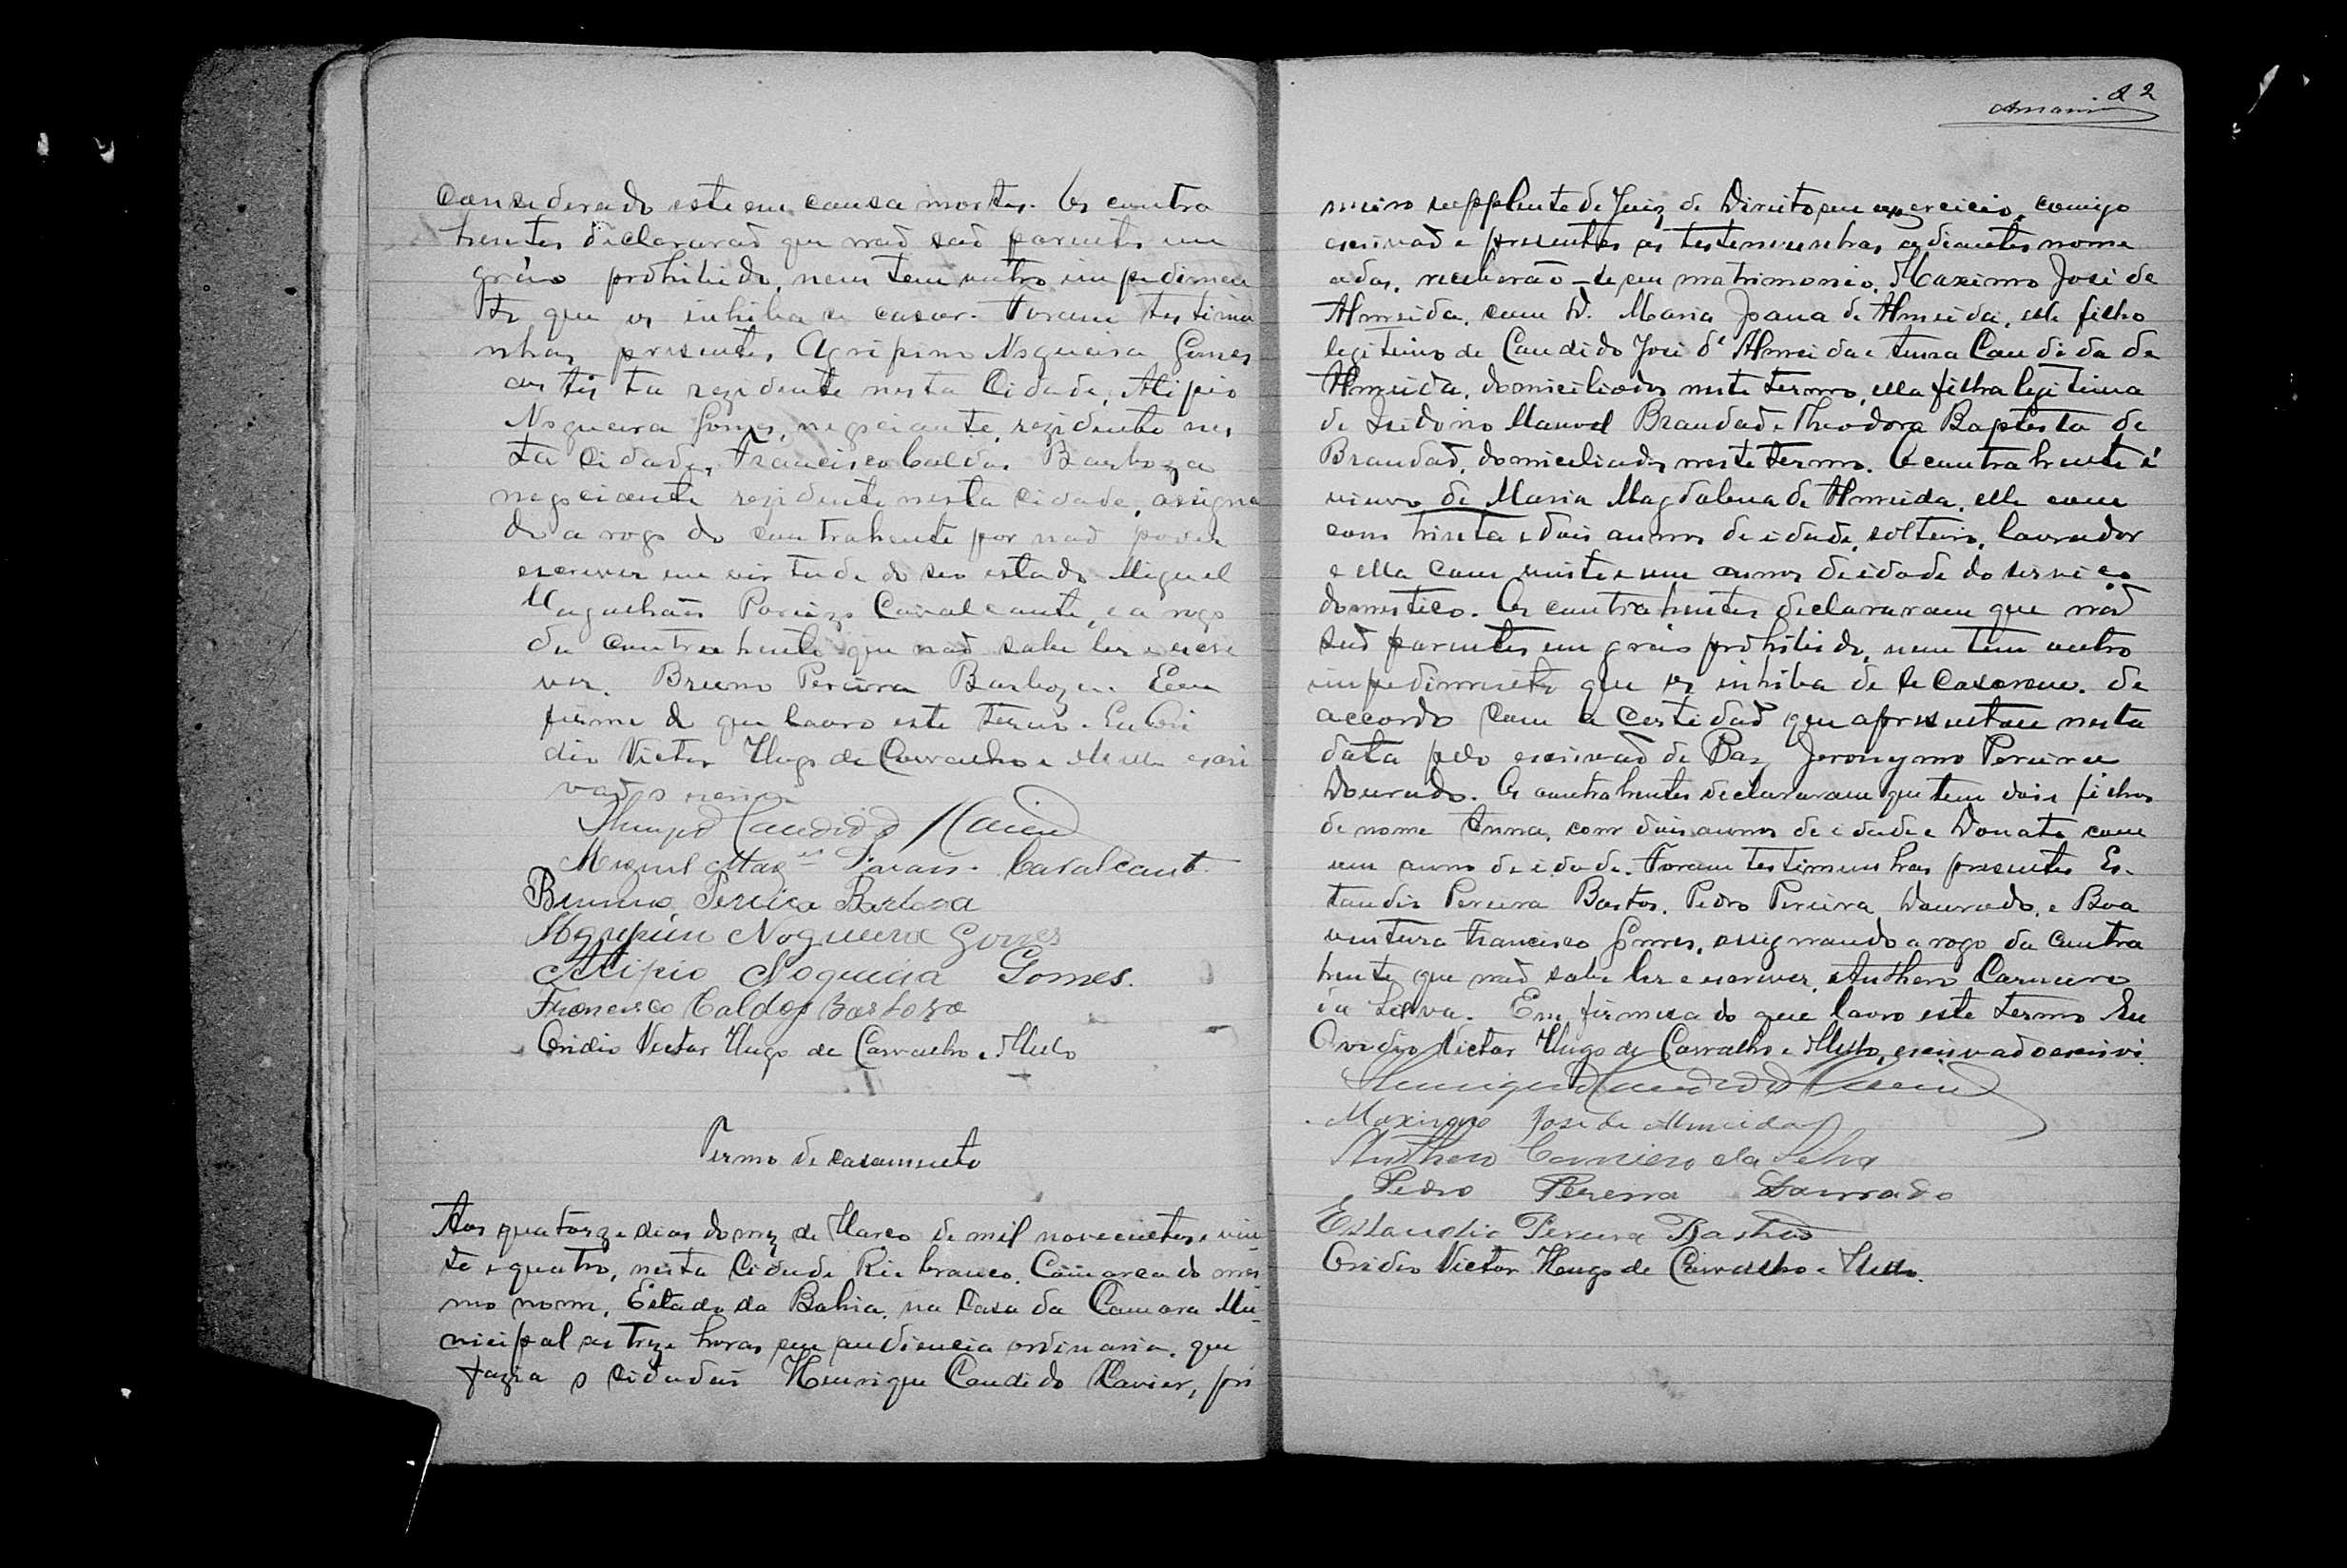 considerado este em causa mortes. Os contra
hentes declararaõ que naõ saõ parentes em
gráo prohibido, nem tem outro impedimen
to que os inhiba de casar. Foram testimu
nhas presentes, Agripino Nogueira Gomes
artista rezidente nesta Cidade, Alipio
Nogueira Gomes, negociante, rezidente nes
ta Cidade, Francisco Caldas Barboza
negociante rezidente nesta cidade, assigna
do a rogo do contrahente por naõ poder
escrever em virtude do seo estado Miguel
Magalhães Cavalcante, e a rogo
da contrahente que naõ sabe ler e escre
ver. Bruno Pereira Barboza. Em
firme do que lavro este termo. Eu Ovi
dio Victor Hugo de Carvalho e Mello escri
vaõ o escrevi
Henriqe Candido Xavier
Miguel Mag.es Cavalcante.
Brunno Pereira Barbosa
Agripino Nogueira Gomes
Alipio Nogueira Gomes.
Francisco Caldas Barboza
Ovidio Victor Hugo de Carvalho e Mello
Termo de casamento
Aos quatorze dias do mez de Março de mil novecentos e vin
te e quatro, nesta Cidade Rio branco. Comarca do mes
mo nome, Estado da Bahia, na Casa da Camara Mu-
nicipal as treze horas em audiencia ordinaria, que
fazia o cidadaõ Henrique Candido Xavier, pri
22
meiro supplente de Juiz de Direito em exercicio, comigo
escrivaõ e presentes as testemunhas adiantes nome
adas, receberão-se em matrimonio, Maximo José de
Almeida, com D. Maria Joana de Almeida, elle filho
legitimo de Candido José d'Almeida e Anna Candida de
Almeida, domiciliados neste termo, ella filha legitima
de Izidorio Manoel Brandaõ e Theodora Baptista de
Brandaõ, domiciliados neste termo. O contrahente é
viuvo de Maria Magdalena de Almeida, elle com
com trinta e dois annos de idade, solteiro, lavrador
e ella com vinte e um annos de idade do serviço
domestico. Os contrahentes declararam que naõ
saõ parentes em gráo prohibido, nem tem outro
impedimento que os inhiba de se casarem. de
accordo com a certidaõ que apresentou nesta
data pelo escrivaõ de Paz Jeronymo Pereira
Dourado. Os contrahentes declararam que tem dois filhos
de nome Anna, com dois annos de idade e Donata com
um anno de idade. Foram testimunhas presentes Es-
taudio Pereira Bastos, Pedro Pereira Dourado, e Boa
ventura Francisco Gomes, assignando a rogo da contra
hente que naõ sabe ler e escrever, Anthero Carneiro
da Silva. Em firmeza do que lavro este termo Eu
Ovidio Victor Hugo de Carvalho e Mello, escrivaõ o escrevi.
Henrique Candido Xavier
Maximo José de Almeida
Anthero Carneiro da Silva
Pedro Pereira Dourado
Estaudio Pereira Bastos
Ovidio Victor Hugo de Carvalho e Mello.